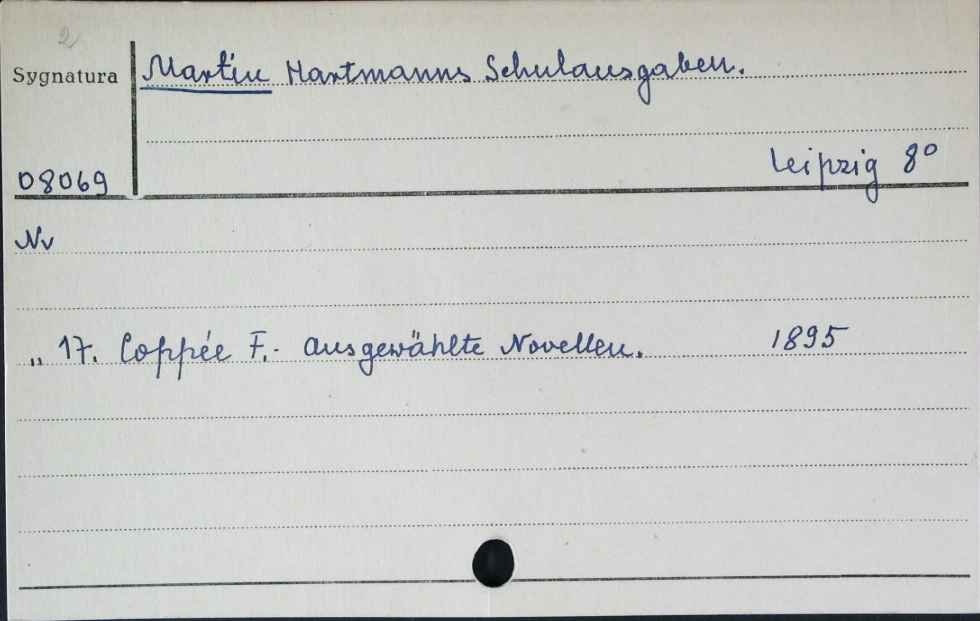 2
Sygnatura
Martin Hartmanns Schulausgaben.
Leipzig 8°
08069
Nr
„ 17. Coppée F.- Ausgewählte Novellen. 1895